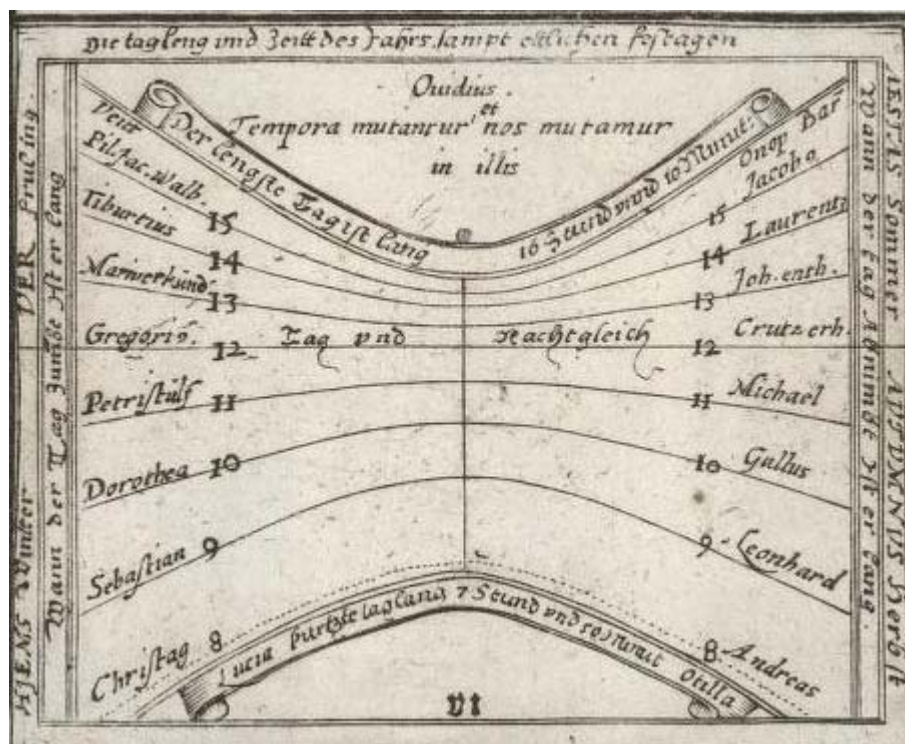 Die tagleng und Zeitt des Jahrs, sampt ettlichen festagen
Ovidius.
Tempora mutantur, et nos mutamur
in illis
Der lengste Tag ist lang 16 Stund vnnd 10 Minut:
Veit
Pil. Jac. Walb. 15
Tiburtius 14
13
Gregoriꝰ. 12
Petri stulf 11
Dorothea 10
Sebastian 9
Christag 8
Tag vnd Nachtgleich
Onop Bar
15 Jacobo
14 Laurenti
13 Joh. enth.
12 Crutzerh.
11 Michael
10 Gallus
9 Leonhard
8 Andreas
Lucia kurtzste tag lang 7 Stund vnd 50 Minut Otilla
VI
HIENS Winter DER frueling
Wann der Tag zumbt Ist er lang
AESTAS Sommer AVTVMNUS Herbst
Wann der tag Abnimbt Ist er Lang.